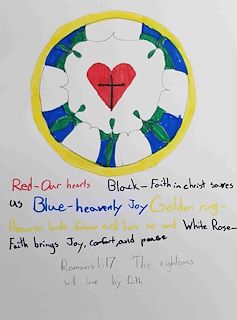 Red-Our hearts Black-Faith in christ saves
us Blue-heavenly Joy Golden ring-
Heaven lasts forever and has no end White Rose-
Faith brings Joy, comfort, and peace
Romans 1:17 The righteous
will love by faith